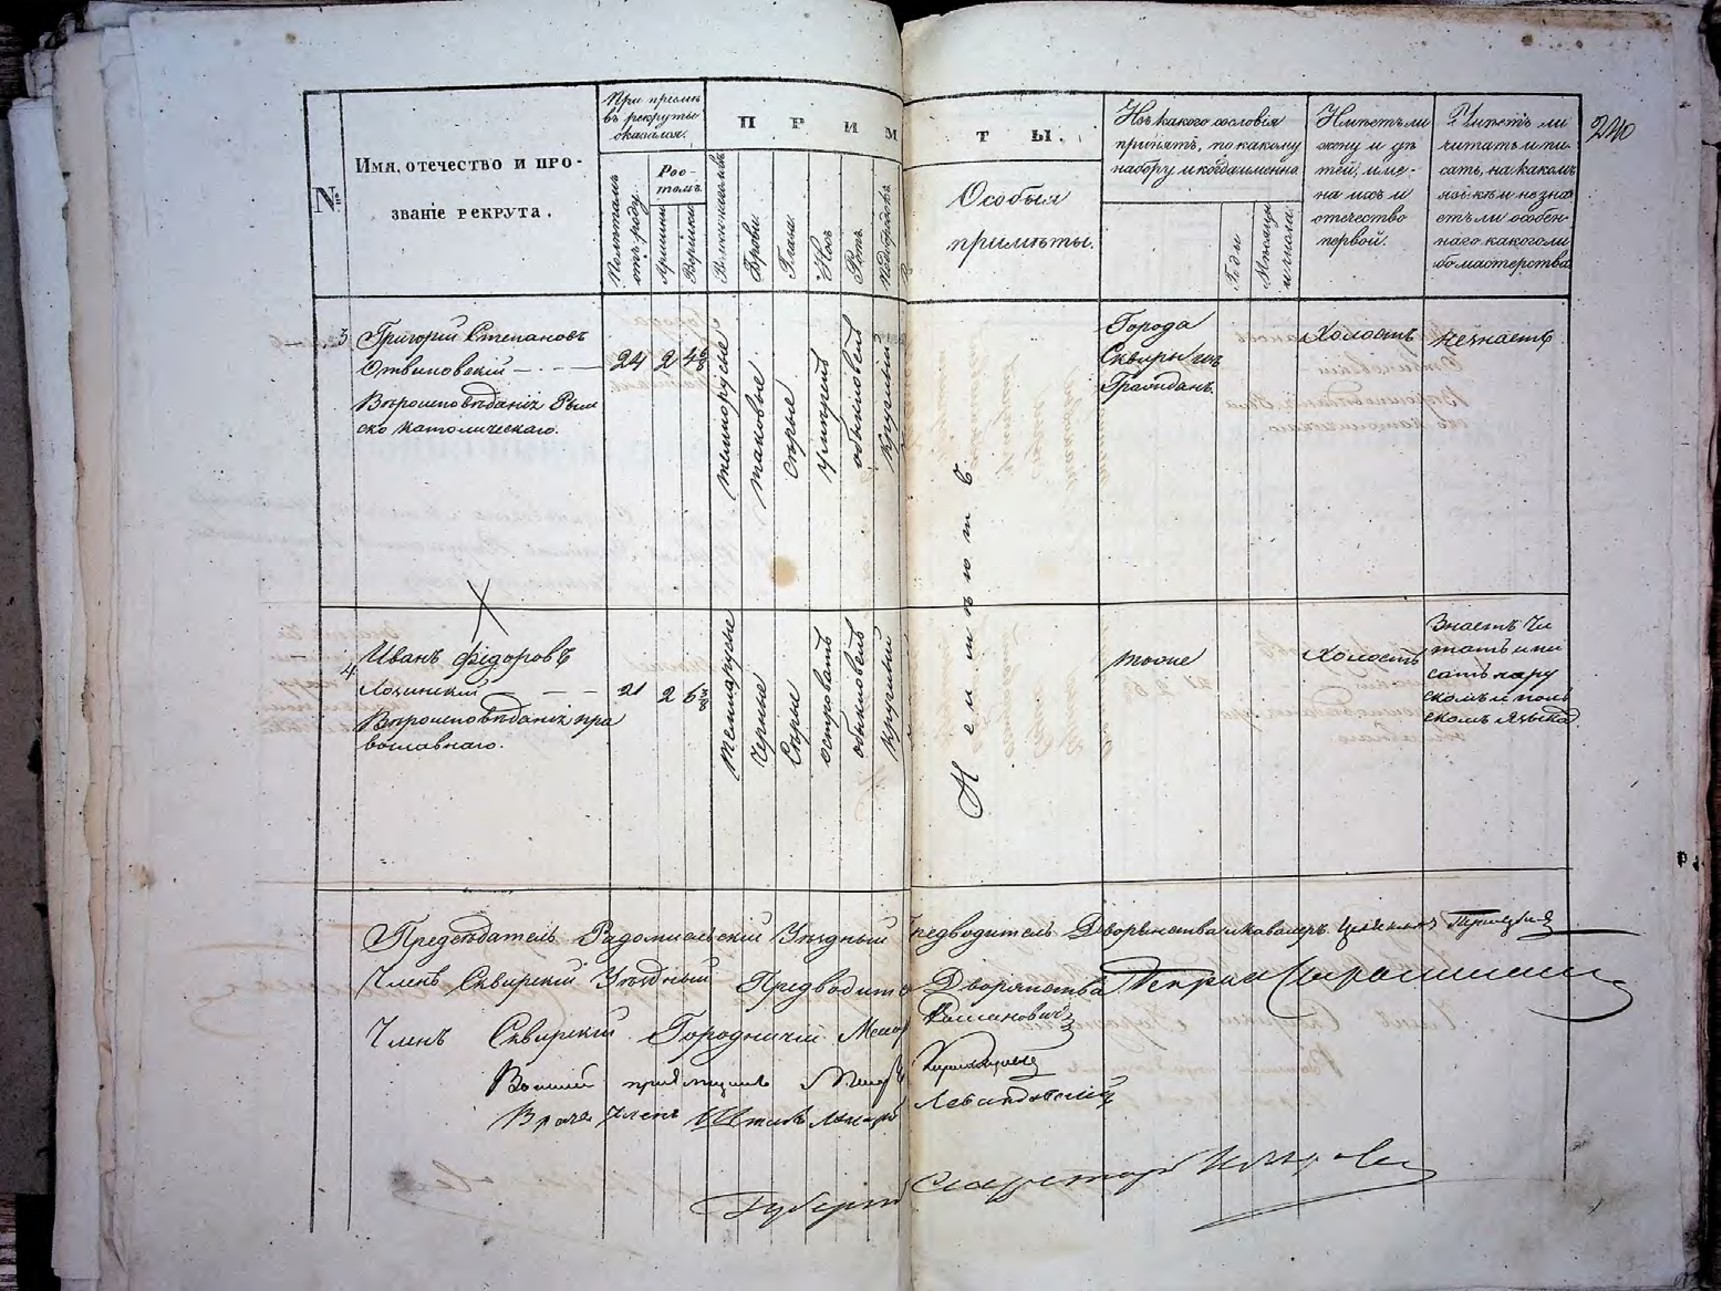 №
Имя, отечество и про-
званіе рекрута.
При пріемѣ
въ рекруты
оказался.
Полѣтамъ
отъ роду.
Рос-
томъ
Аршины
Вершки
ПРИМ
ТЫ.
Брови
Глаза
Носъ
Ротъ
Подбородокъ
Особыя
примѣты.
Изъ какого сословія
принятъ, по какому
набору и когда именно
Годы
Мѣсяцы
и числа
Имѣетъ ли
жену и дѣ
тей, име-
на ихъ и
отечество
первой.
Умѣетъ ли
читать и пи-
сать, на какомъ
языкѣ и не зна
етъ ли особен-
наго какого ли
бо мастерства
240
3
Григорій Степановъ
Отвиновскій
Вѣроисповѣданія Рим
ско католическаго.
24
2
4
темнорусые
таковые
сѣрые
умѣренъ
обыкновенъ
круглый
Неимѣютъ
Города
Сквиры изъ
Гражданъ
Холостъ
незнаетъ
4
Иванъ Фідоровъ
Лозинскій
Вѣроисповѣданія пра
вославнаго.
21
2
6
темнорусые
черные
Сѣрые
островатъ
обыкновенъ
круглый
тоже
Холостъ
Знаетъ Чи
тать и пи
сать нару
скомъ и поль
скомъ языка
Предсѣдатель Радомысльскій Уѣздный Предводитель Дворянства и кавалеръ
Членъ Сквирскій Уѣздный Предводите Дворянства
Членъ Сквирскій Городничій Маіоръ
Воинскій пріемщикъ Маіоръ
Врачь Членъ Штабъ Лекарь Левандовскій
Губерн Секретарь